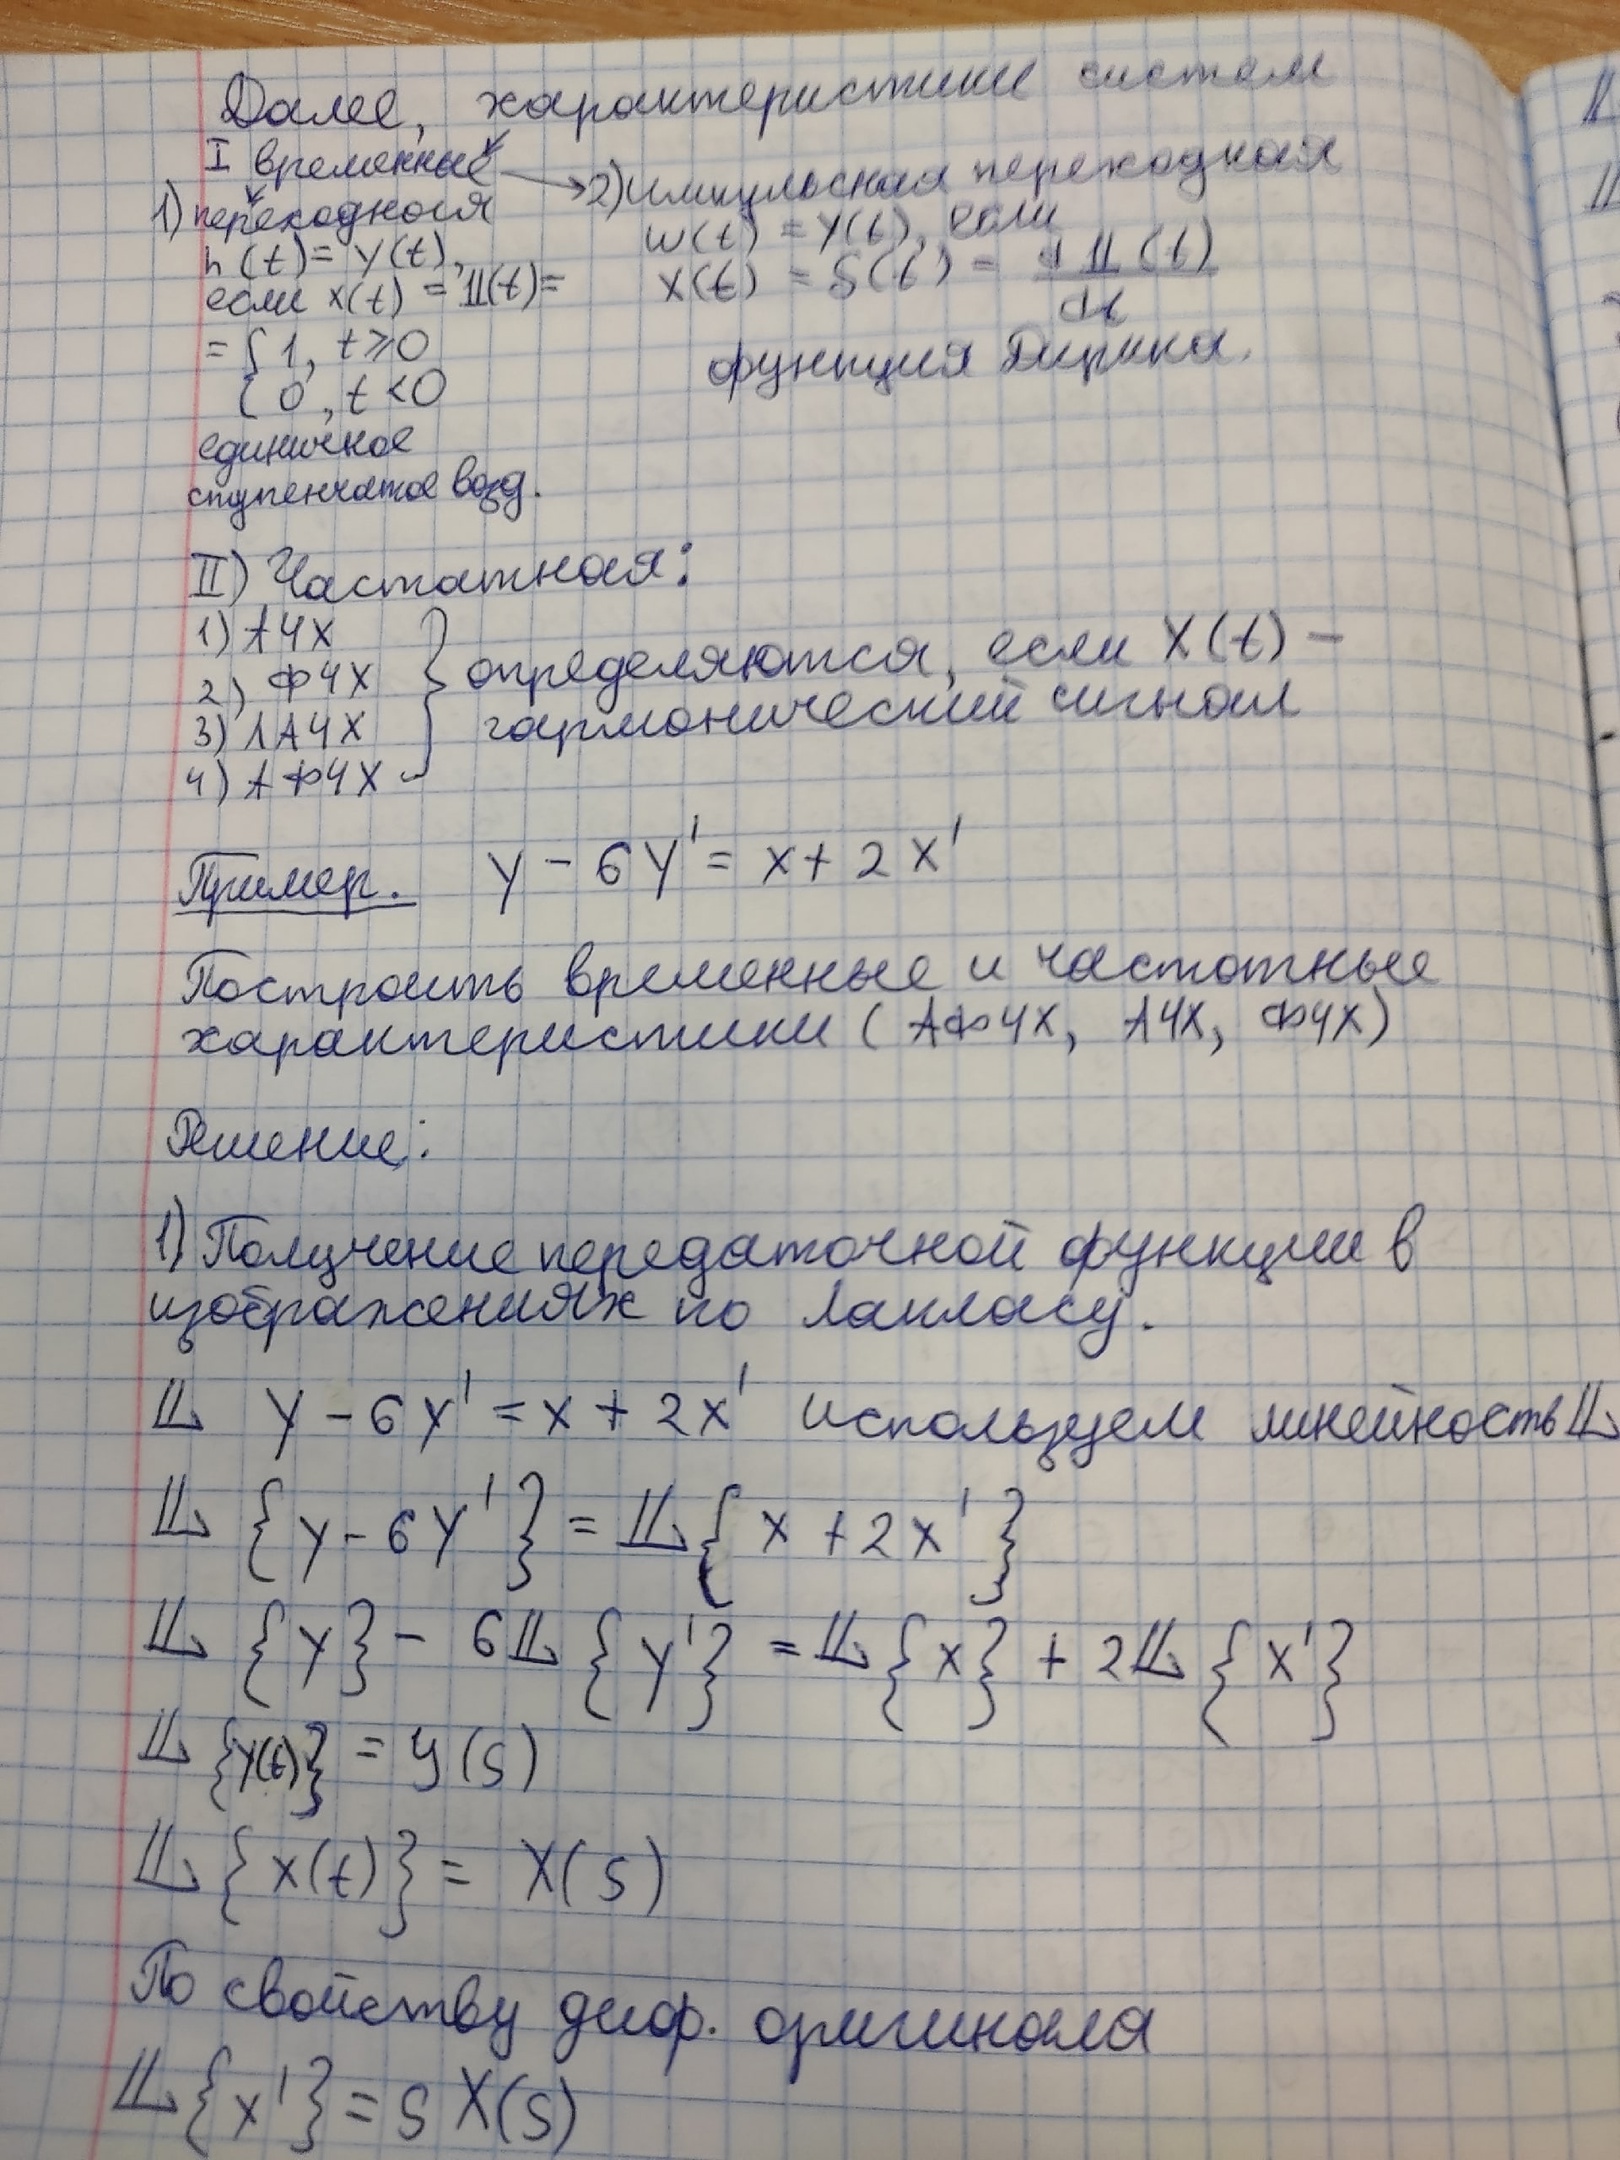 Далее, характеристики систем
I временные
1) переходная
h(t) = y(t),
если x(t) = 1(t) =
= { 1, t ≥ 0
{ 0, t < 0
единичное
ступенчатое возд.
2) импульсная переходная
w(t) = y(t), если
x(t) = δ(t) = d 1(t) / dt
функция Дирака.
II) Частатная:
1) АЧХ
2) ФЧХ
3) ЛАЧХ
4) АФЧХ
определяются, если X(t) –
гармонический сигнал
Пример. y - 6y' = x + 2x'
Построить временные и частотные
характеристики (АФЧХ, АЧХ, ФЧХ)
Решение:
1) Получение передаточной функции в
изображениях по Лапласу.
L y - 6y' = x + 2x' используем линейность L
L {y - 6y'} = L {x + 2x'}
L {y} - 6L {y'} = L {x} + 2L {x'}
L {y(t)} = Y(s)
L {x(t)} = X(s)
По свойству диф. оригинала
L {x'} = s X(s)